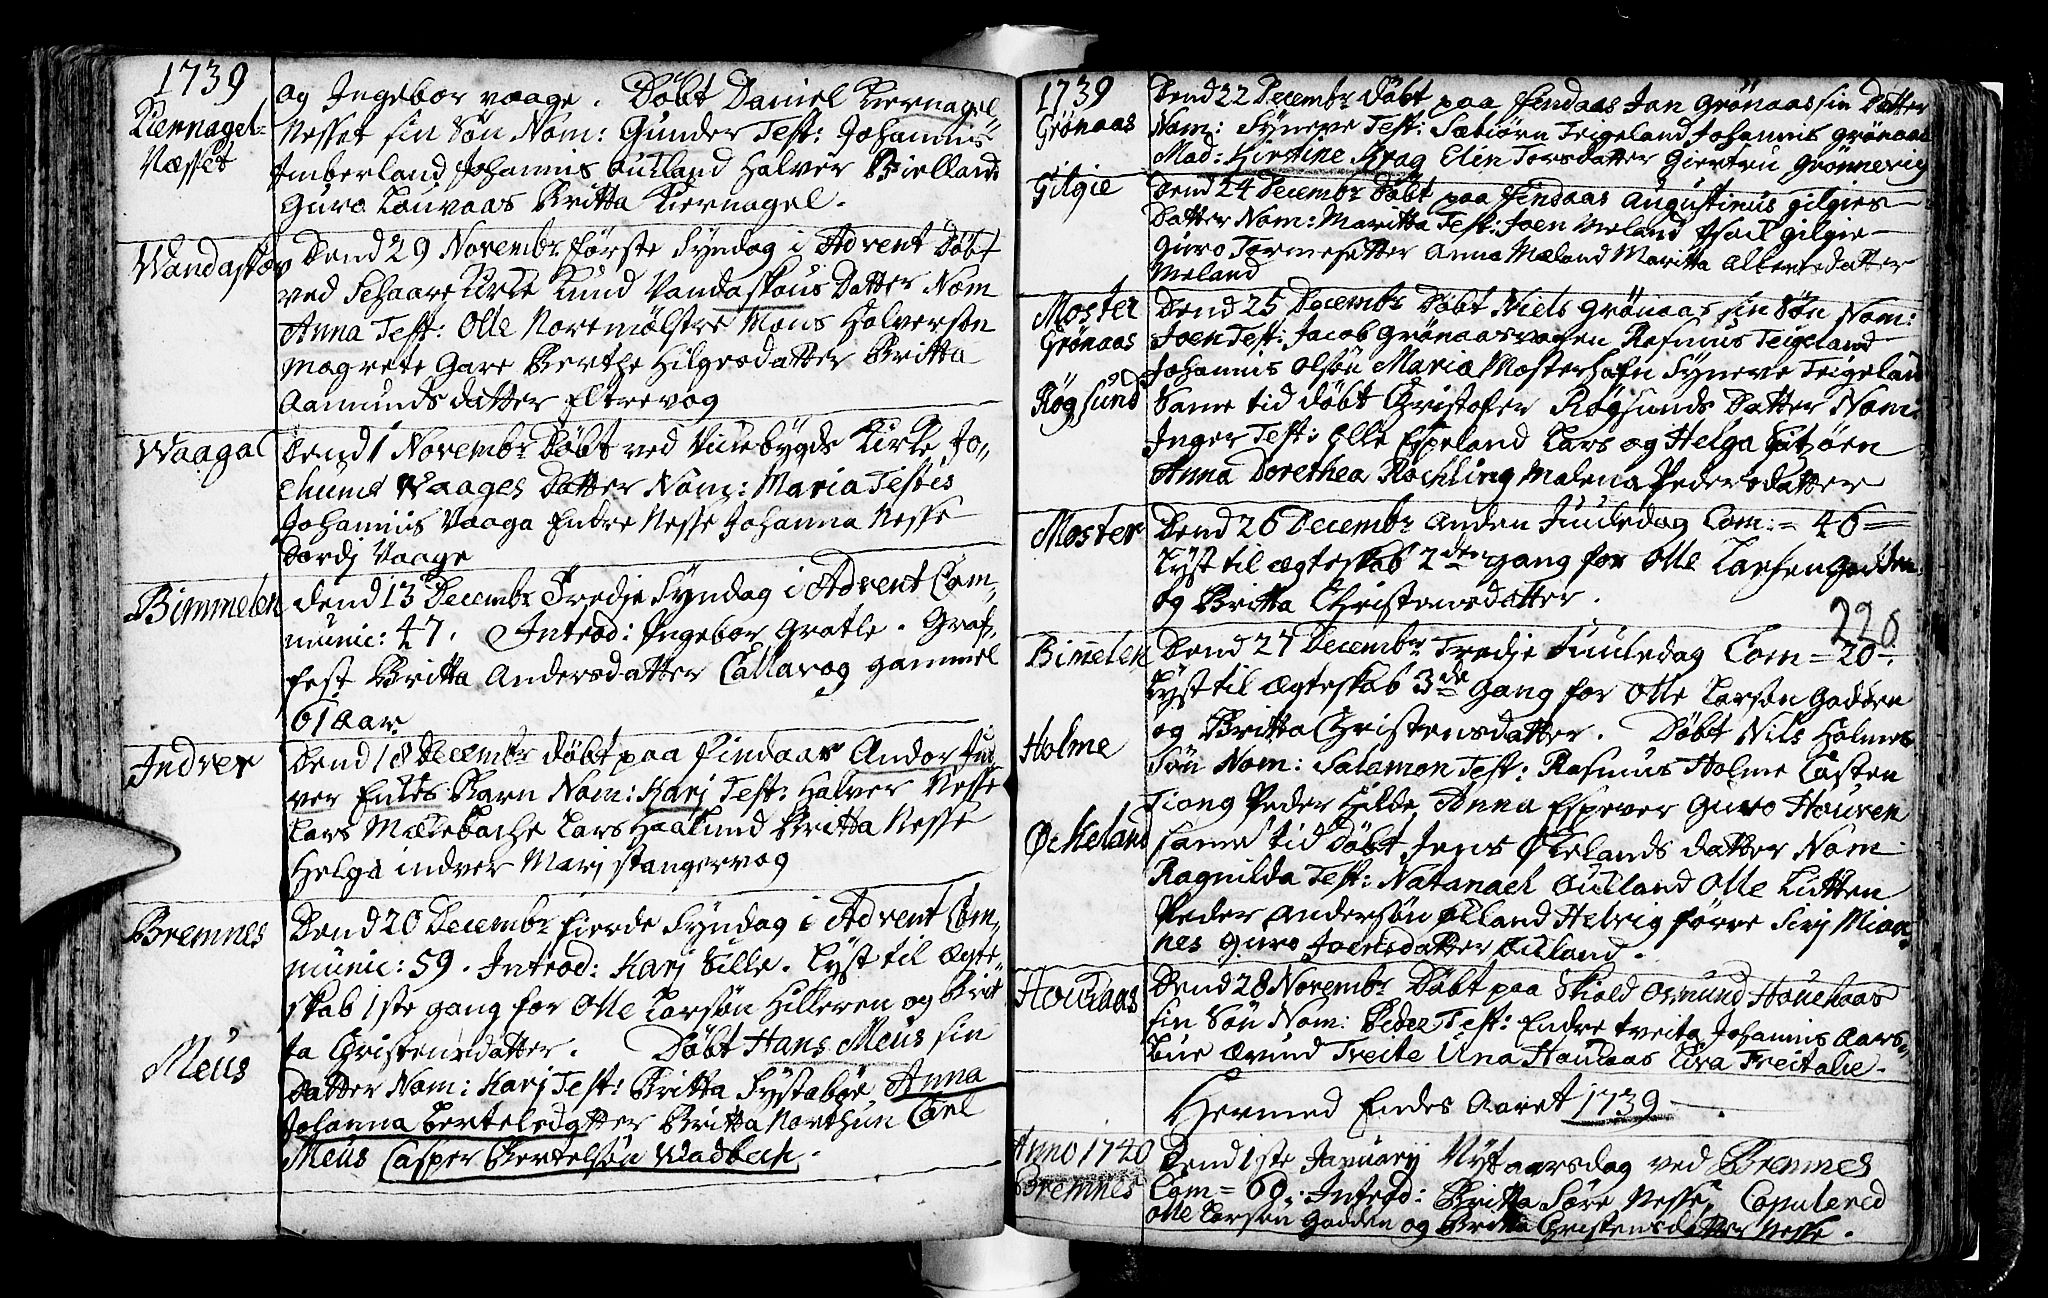 1739
Kiernagel-
Næsset
og Ingebor vaage. Døbt Daniel Kiernagel-
Nesset sin Søn Nom: Gunder Test: Johannis
Imberland Johannis Autland Halver Bielland
Guro Louvaas Britta Kiernagel.
Wandaskov
Dend 29 Novembr. første Syndag i Advent Døbt
ved Schaare Kirke Knud Vandaskous Datter Nom
Anna Test: Olle Noremølstre Mons Halversøn
Magrete Gare Berthe Hilgesdatter Britta
Aamundsdatter Eltrevog
Waaga
Dend 1 Novembr. Døbt ved Kirke Jo-
chums Vaages Datter Nom: Maria Testes
Johannis Vaaga Endre Nesse Johanna Nesse
Dordj Vaage
Bimmelen
Dend 13 Decembr. Tredje Syndag i Advent Com-
munic: 47. Introd: Ingebor Gratle. Graf-
fest Britta Andersdatter Callavog gammel
61 Aar
Indver
Dend 18 Decembr. døbt paa Findaas Andor Ind
ver Enkes Barn Nom: Karj Test: Halver Nesse
Lars Mælebache Lars Haalund Britta Nesse
Helga indver Marj stangervog
Bremnes
Dend 20 Decembr. fierde Syndag i Advent Com-
munic: 59. Introd: Karj Sille. Lyst til Ægte-
skab 1ste gang for Olle Larsøn Hilleren og Brit
ta Christensdatter. Døbt Hans Meus sin
Meus
Datter Nom: Karj Test: Britta Systabøe, Anna
Johanna Bertelsdatter Britta Northun Carl
Meus Casper Bertelsøn Wadbech.
1739
Grønaas
Dend 22 Decembr. Døbt paa Findaas Jan Grønaas sin Datter
Nom: Syneve Test: Sæbiørn Teigeland Johannis Grønaas
Mad: Kirstine Krag Elin Torsdatter Giertru Grønnevig
Gilgie
Dend 24 Decembr. Døbt paa Findaas Augustinus Gilgies
Datter Nom: Maritta Test: Joen Meland Gilgie
Guro Anna Mæland Maritta
Meland
Moster
Grønaas
Dend 25 Decembr. Døbt Niels Grønaas sin Søn Nom:
Joen Test: Jacob Grønaasvogen Rasmus Teigeland
Johannis Olsøn Maria Mosterhafn Syneve Teigeland
Røgsund
Same tid døbt Christofer Røgsunds Datter Nom:
Inger Test: Olle Espeland Lars og Helga Sætøen
Anna Dorethea Rochling Malena Pedersdatter
Moster
Dend 26 Decembr. Anden Juuledag Com: = 46 =
Lyst til ægteskab 2den gang for Olle Larsen Godøen
og Britta Christensdatter.
226
Bimelen
Dend 27 Decembr. Tredje Juuledag Com = 20 =
Lyst til ægteskab 3de gang for Olle Larsøn Godøen
og Britta Christensdatter. Døbt Nils Holmes
Holme
Søn Nom: Salamon Test: Rasmus Holme Casten
Tiong Peder Hilde Anna Espever Guro Houren
Øckeland
same tid døbt Jens Økelands datter Nom
Ragnilda Test: Natanael Autland Olle Lutten
Peder Andersøn Ølland Helvig førre Sirj Mion-
nes Guro Autland.
Houkaas
Dend 28 Novembr. Døbt paa Skiold Osmund Houchaas
sin Søn Nom: Peder Test: Endre tveita Johannis Aars-
bue Ævind Treite Una Houkaas Treitalie.
Hermed Endes Aaret 1739.
Anno 1740
Bremnes
Dend 1ste January Nytaarsdag ved Bremnes
Com = 60. Introd: Britta Søre Nesse, Copulered
Olle Larsøn Godden og Britta Christensdatter Nesse.